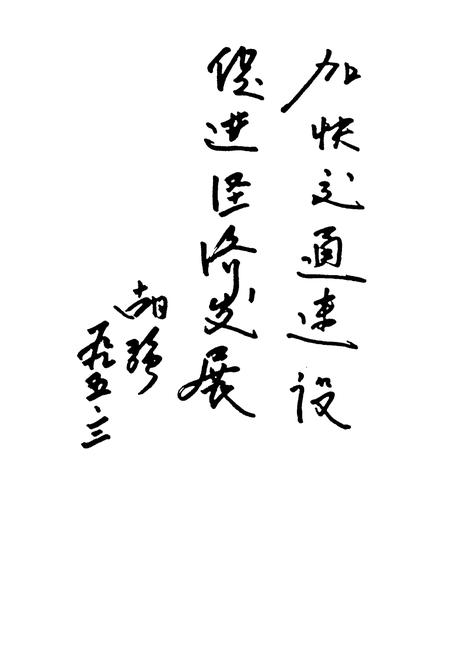 加快交通建设
促进经济发展
胡强
九五、三